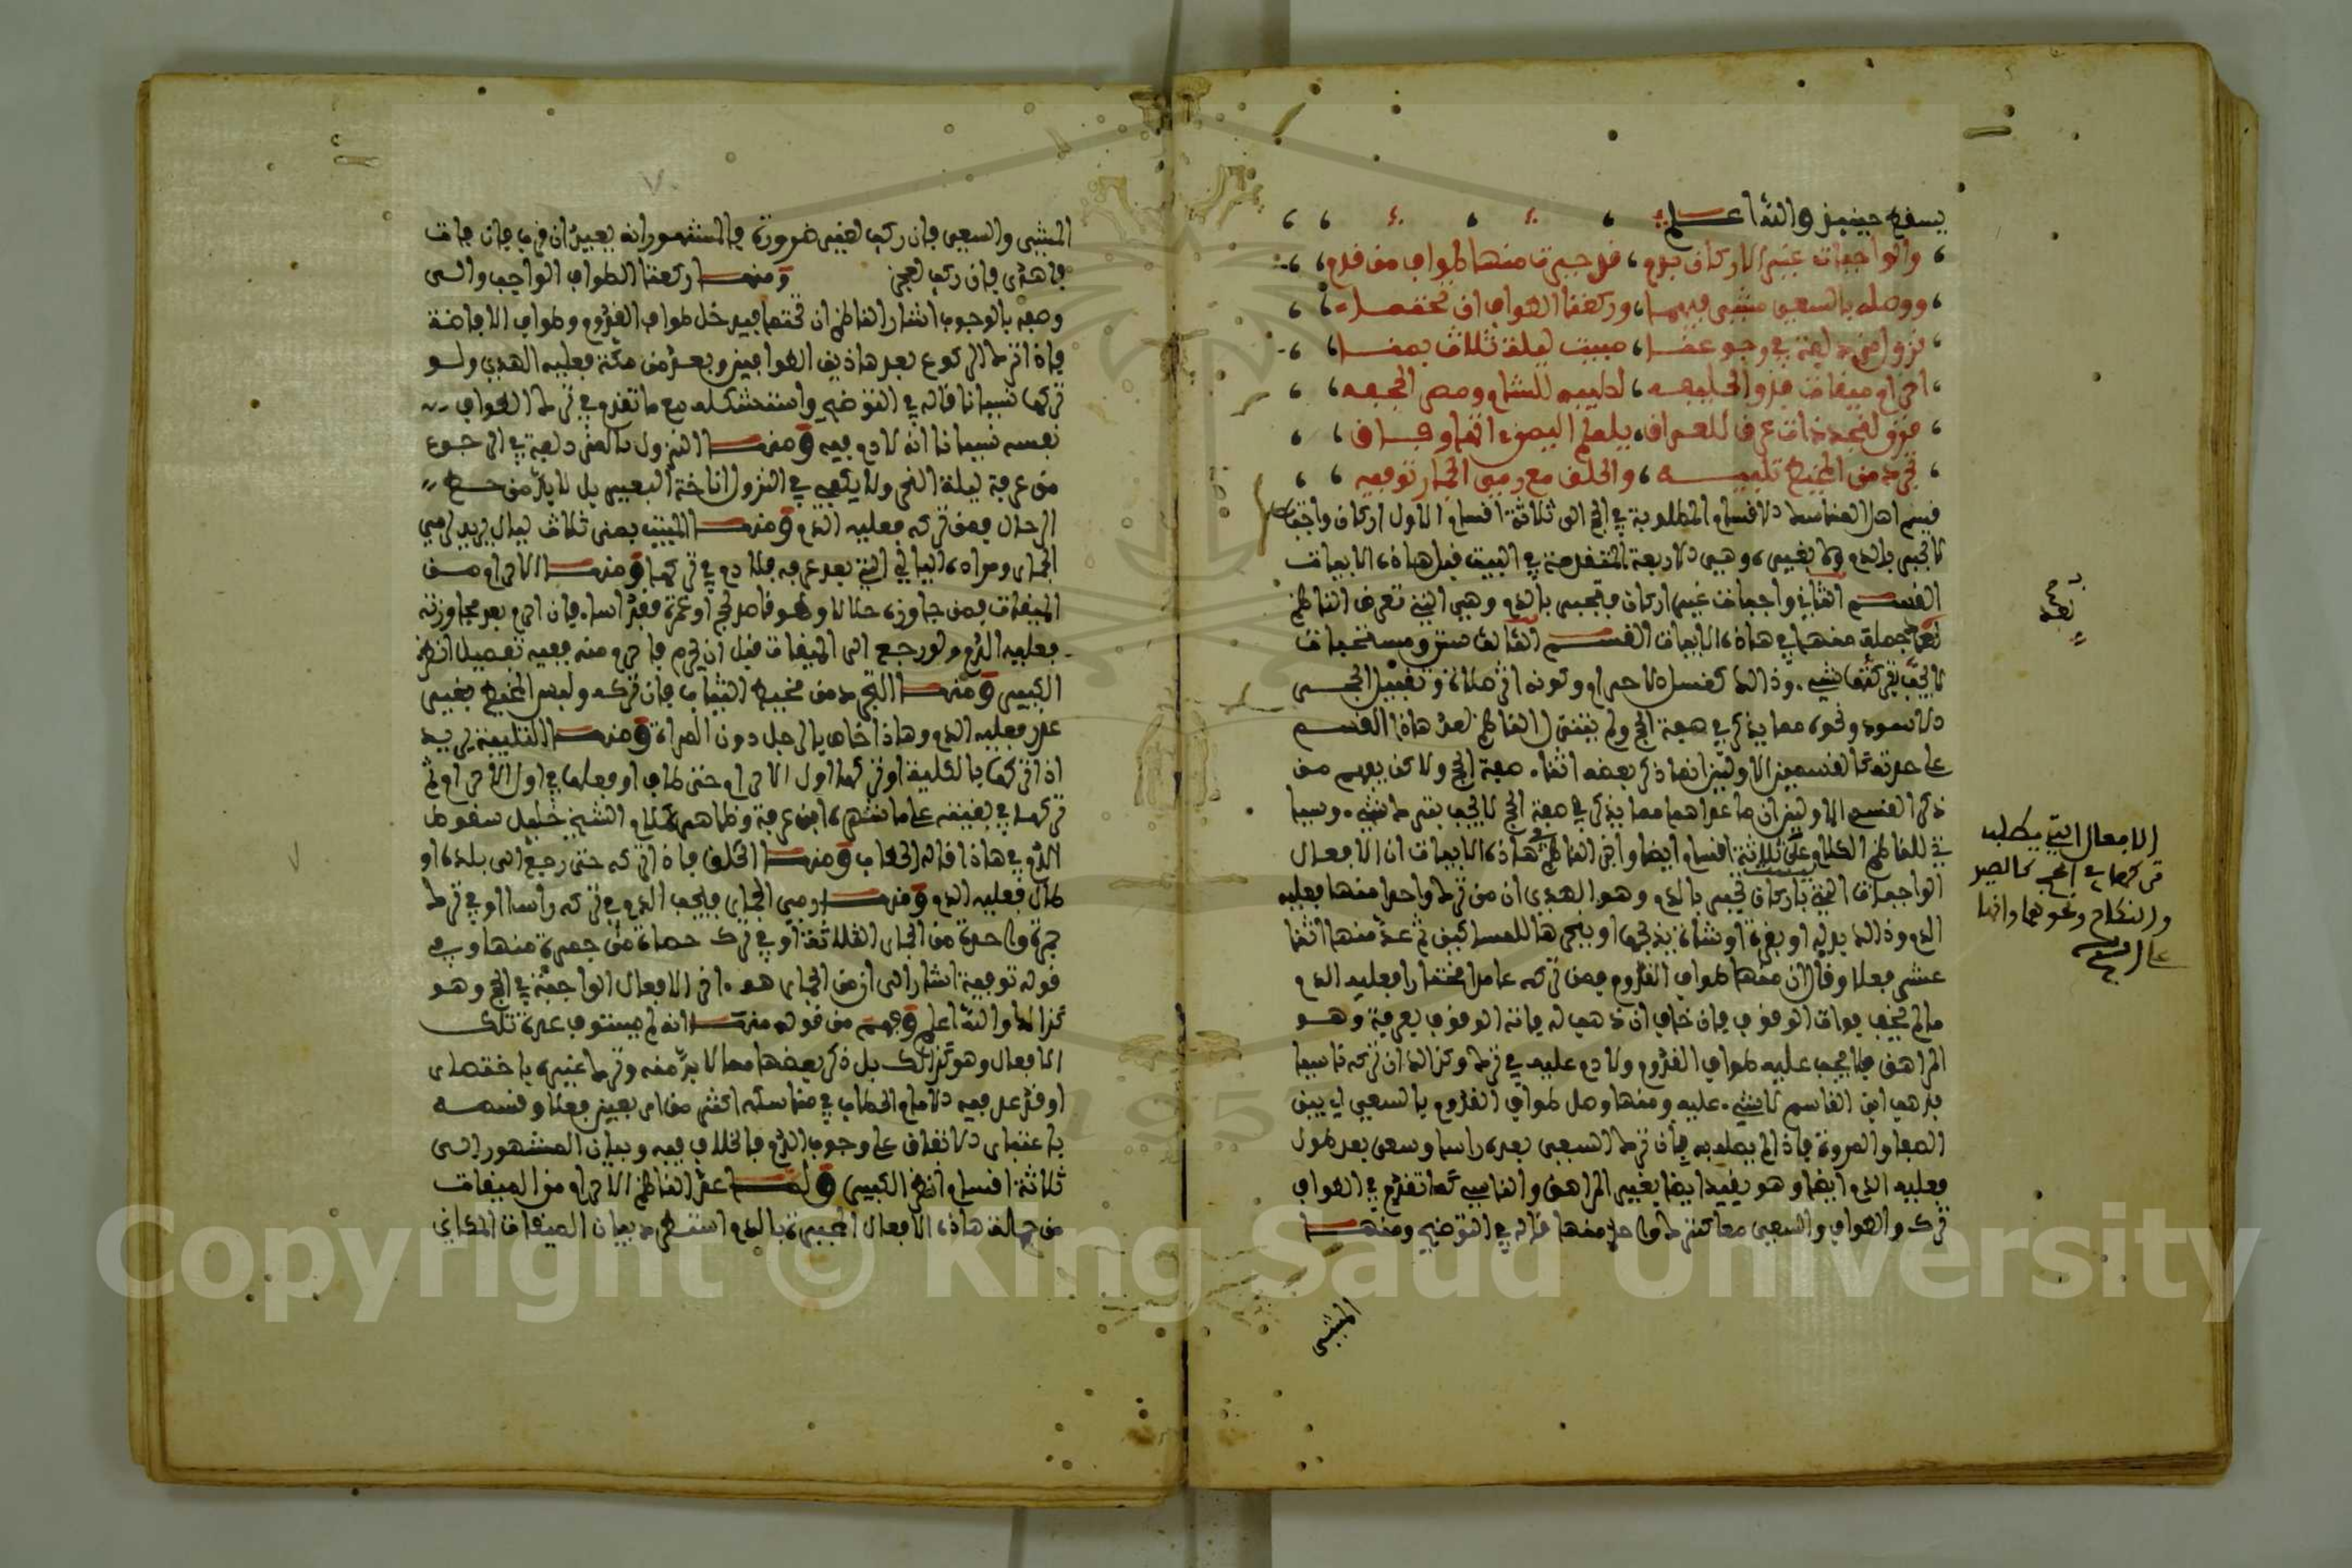 يسقط حينئذ والله أعلم
والواجبات غير الاركان بدم ، قد جبرت منها طواف من قدم
ووصله بالسعي مشي فيهما ، وركعتا الطواف ان تحتما
نزول مزدلفة في رجوعنا ، مبيت ليلة ثلاث بمنى
احرام ميقات فذو الحليفه ، لطيبه للشام ومصر الجحفه
قرن لنجد ذات عرق للعراق ، يلملم اليمن اتيها وفاق
تجرد من المخيط تلبيه ، والحلق مع رمي الجمار توفيه
قسم اهل المناسك الافعال المطلوبة في الحج الى ثلاثة اقسام الاول اركان واجبات
لا تجبر بالدم ولا بغيره وهي الاربعة المتقدمة في البيت قبل هاذه الابيات
القسم الثاني واجبات غير اركان فتجبر بالدم وهي التي تعرض الناظم
لعد جملة منها في هاذه الابيات القسم الثالث سنن ومستحبات
لا يجب بتركها شيء وذالك كغسل الاحرام وكونه اثر صلاة وتقبيل الحجر
الاسود ونحوه مما يذكر في صفة الحج ولم يعتن الناظم لعد هاذا القسم
على حدته كالقسمين الاولين انما ذكر بعضه اثناء صفة الحج ولاكن يفهم من
ذكر القسمين الاولين ان ما عداهما مما يذكر في صفة الحج لا يجب بتركه شيء وسيا
تي للناظم الكلام على ثلاثة اقسام ايضا واخبر الناظم في هاذه الابيات ان الافعال
الواجبات التي باركان تجبر بالدم وهو الهدي ان من ترك واحدا منها فعليه
الدم وذالك بدنة او بقرة او شاة يذبحها او ينحرها للمساكين ثم عد منها اثنا
عشر فعلا وقال ان منها طواف القدوم فمن تركه عامدا مختارا فعليه الدم
ما لم يخف فوات الوقوف فان خاف ان ذهب له فاته الوقوف بعرفة وهو
المراهق فلا يجب عليه طواف القدوم ولا دم عليه في تركه وكذالك ان تركه ناسيا
فذهب ابن القاسم لا شيء عليه ومنها وصل طواف القدوم بالسعي اي بين
الصفا والمروة فاذا لم يصله به فان ترك السعي بعده راسا وسعى بعد طول
فعليه الدم ايضا وهو بقيد ايضا بغير المراهق والناسي كما تقدم في الطواف
ترك والطواف والسعي معا كترك واحد منها قاله في التوضيح ومنها
المشي
لعد
الافعال التي يطلب
تركها في الحج كالصيد
والنكاح ونحوهما وانما
المشي والسعي فان ركب لغير ضرورة فالمشهور انه يعيد ان قرب فان فات
فاهدى فان ركب لعجز ومنها ركعتا الطواف الواجب والى
وصفه بالوجوب اشار الناظم ان تحتما فيدخل طواف القدوم وطواف الافاضة
فاذا ترك الركوع بعد هاذين الطوافين وبعد من مكة فعليه الهدي ولو
تركها نسيانا قاله في التوضيح واستشكله مع ما تقدم في ترك الطواف
نفسه نسيانا انه لا دم فيه ومنها النزول بالمزدلفة في الرجوع
من عرفة ليلة النحر ولا يكفي في النزول اناخة البعير بل لا بد من حط
الرحال فمن تركه فعليه الدم ومنها المبيت بمنى ثلاث ليال يريد لرمي
الجمار ومراده الليالي التي بعد عرفه فلا دم في تركها ومنها الاحرام من
الميقات فمن جاوزه حلالا وهو قاصد لحج او عمرة فقد اساء فان احرم بعد مجاوزته
فعليه الدم ولو رجع الى الميقات قبل ان يحرم فاحرم منه ففيه تفصيل انظر
الكبير ومنها التجرد من مخيط الثياب فان تركه ولبس المخيط بغير
عذر فعليه الدم وهاذا خاص بالرجل دون المراة ومنها التلبية يريد
اذا تركها بالكلية او تركها اول الاحرام حتى طاف او فعلها في اول الاحرام ثم
تركها في بقيته على ما شهره ابن عرفة وظاهر كلام الشيخ خليل سقوط
الدم في هاذا قاله الحطاب ومنها الحلق فاذا تركه حتى رجع الى بلده او
طال فعليه الدم ومنها رمي الجمار فيجب الدم في تركه راسا او في ترك
جمرة واحدة من الجمار الثلاثة او في ترك حصاة من جمرة منها وفي
قوله توفية اشار الى ان رمي الجمار هو اخر الافعال الواجبة في الحج وهو
كذالك والله أعلم وفهم من قوله منها انه لم يستوف عدة تلك
الافعال وهو كذالك بل ذكر بعضها مما لا بد منه وترك غيره باختصار
او قد عد فيه الامام الحطاب في مناسكه اكثر من اربعين فعلا وقسمه
باعتبار الاتفاق على وجوب الدم فالخلاف فيه وبيان المشهور الى
ثلاثة اقسام انظر الكبير ولما عد الناظم الاحرام من الميقات
من جملة هاذه الافعال المجبرة بالدم استطرد بيان الميقات المكاني
Copyright © King Saud University
195